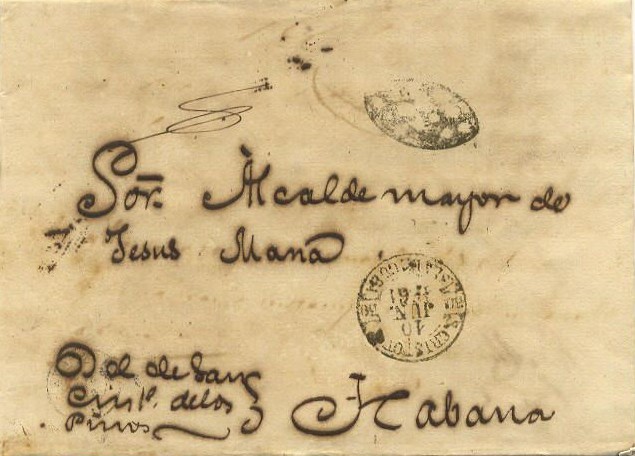 Sor. Alcalde mayor de
Jesus Maria
10
JUN
61
Del de San
Crisl. de los
Pinos
Habana